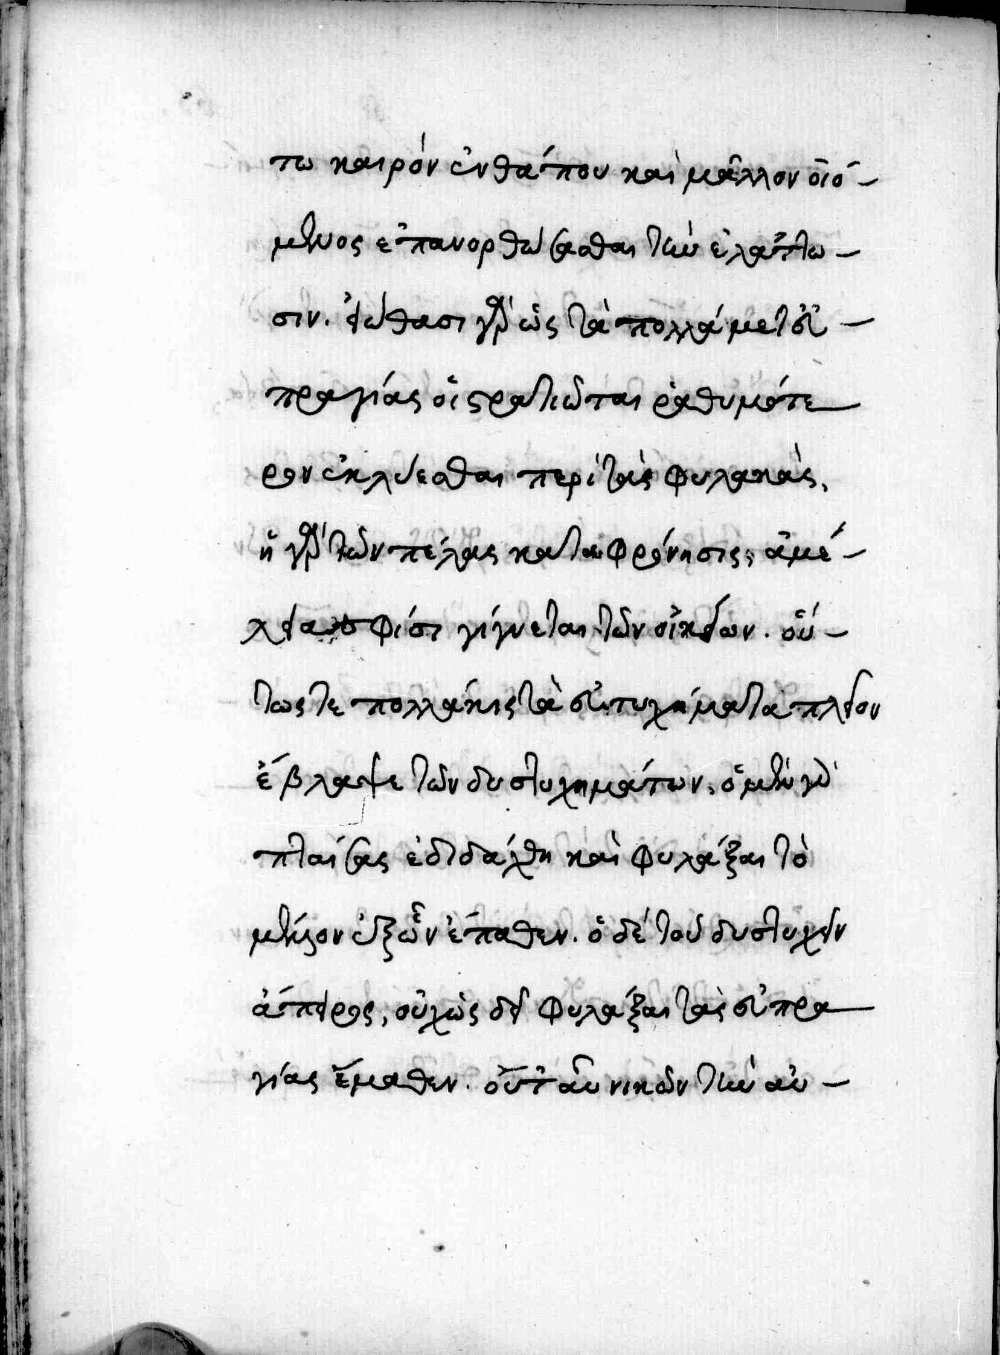 τω καιρόν ἐνθάπου καὶ μᾶλλον οἰό-
μενος ἐπανορθώσασθαι τὴν ἐλάττω-
σιν. εἰώθασι γὰρ ὡς τὰ πολλὰ μετ εὐ-
πραγίας οἱ στρατιῶται ῥαθυμότε-
ρον ἐκλύεσθαι περὶ τὰς φυλακάς.
ἡ γὰρ τῶν πέλας καταφρόνησις, ἀμέ-
λεια σφίσι γίγνεται τῶν οἰκείων. οὕ-
τως τε πολλάκις τὰ εὐτυχήματα πλεῖον
ἔβλαψε τῶν δυστυχημάτων. ὁ μὲν γὰρ
πταίσας ἐδιδάχθη καὶ φυλάξαι τὸ
μέλλον ἐξ ὧν ἔπαθεν. ὁ δὲ τοῦ δυστυχεῖν
ἄπειρος, οὐχ ὡς δεῖ φυλάξαι τὰς εὐπρα
γίας ἔμαθεν. οὔτ αὖ νικῶν τὴν αὐ-